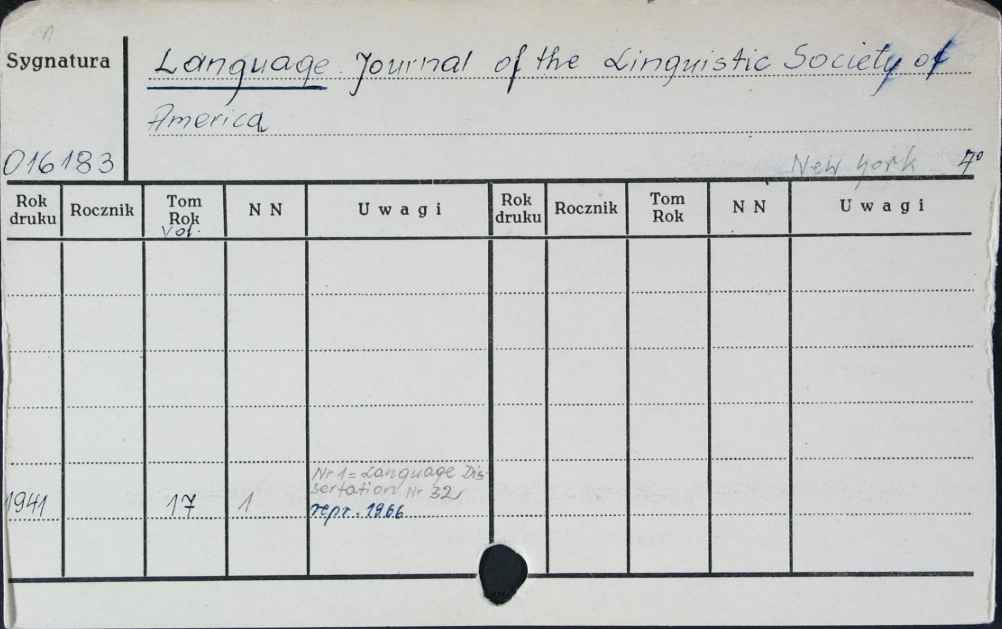 Sygnatura
Language Journal of the Linguistic Society of
America
016183
New York 4°
Rok druku Rocznik Tom Rok Vol. NN Uwagi Rok druku Rocznik Tom Rok NN Uwagi
Nr 1 = Language Dis-
sertation Nr 32
1941 17 1 repr. 1966